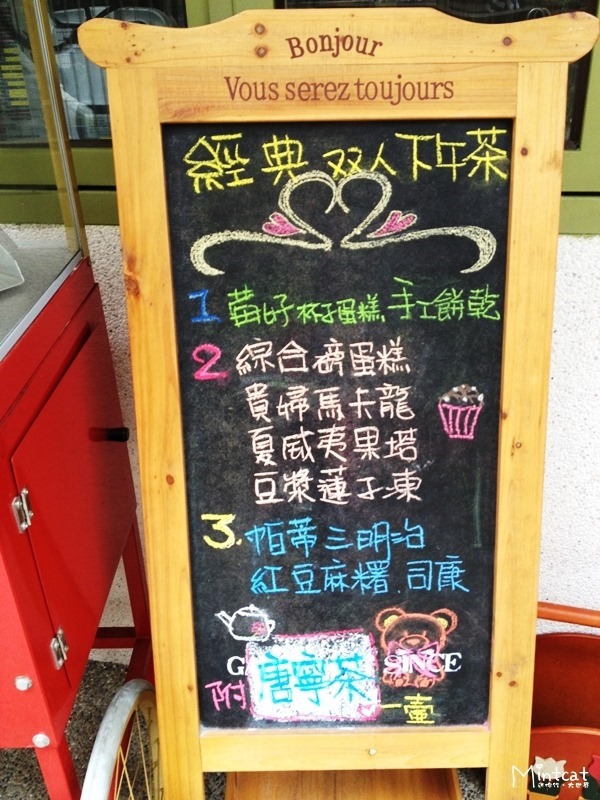 Bonjour
Vous serez toujours
經典 双人下午茶
1 莓好杯子蛋糕、手工餅乾
2 綜合磅蛋糕
貴婦馬卡龍
夏威夷果塔
豆漿蓮子凍
3. 帕蒂三明治
紅豆麻糬、司康
SINCE
附唐寧茶一壺
Mintcat